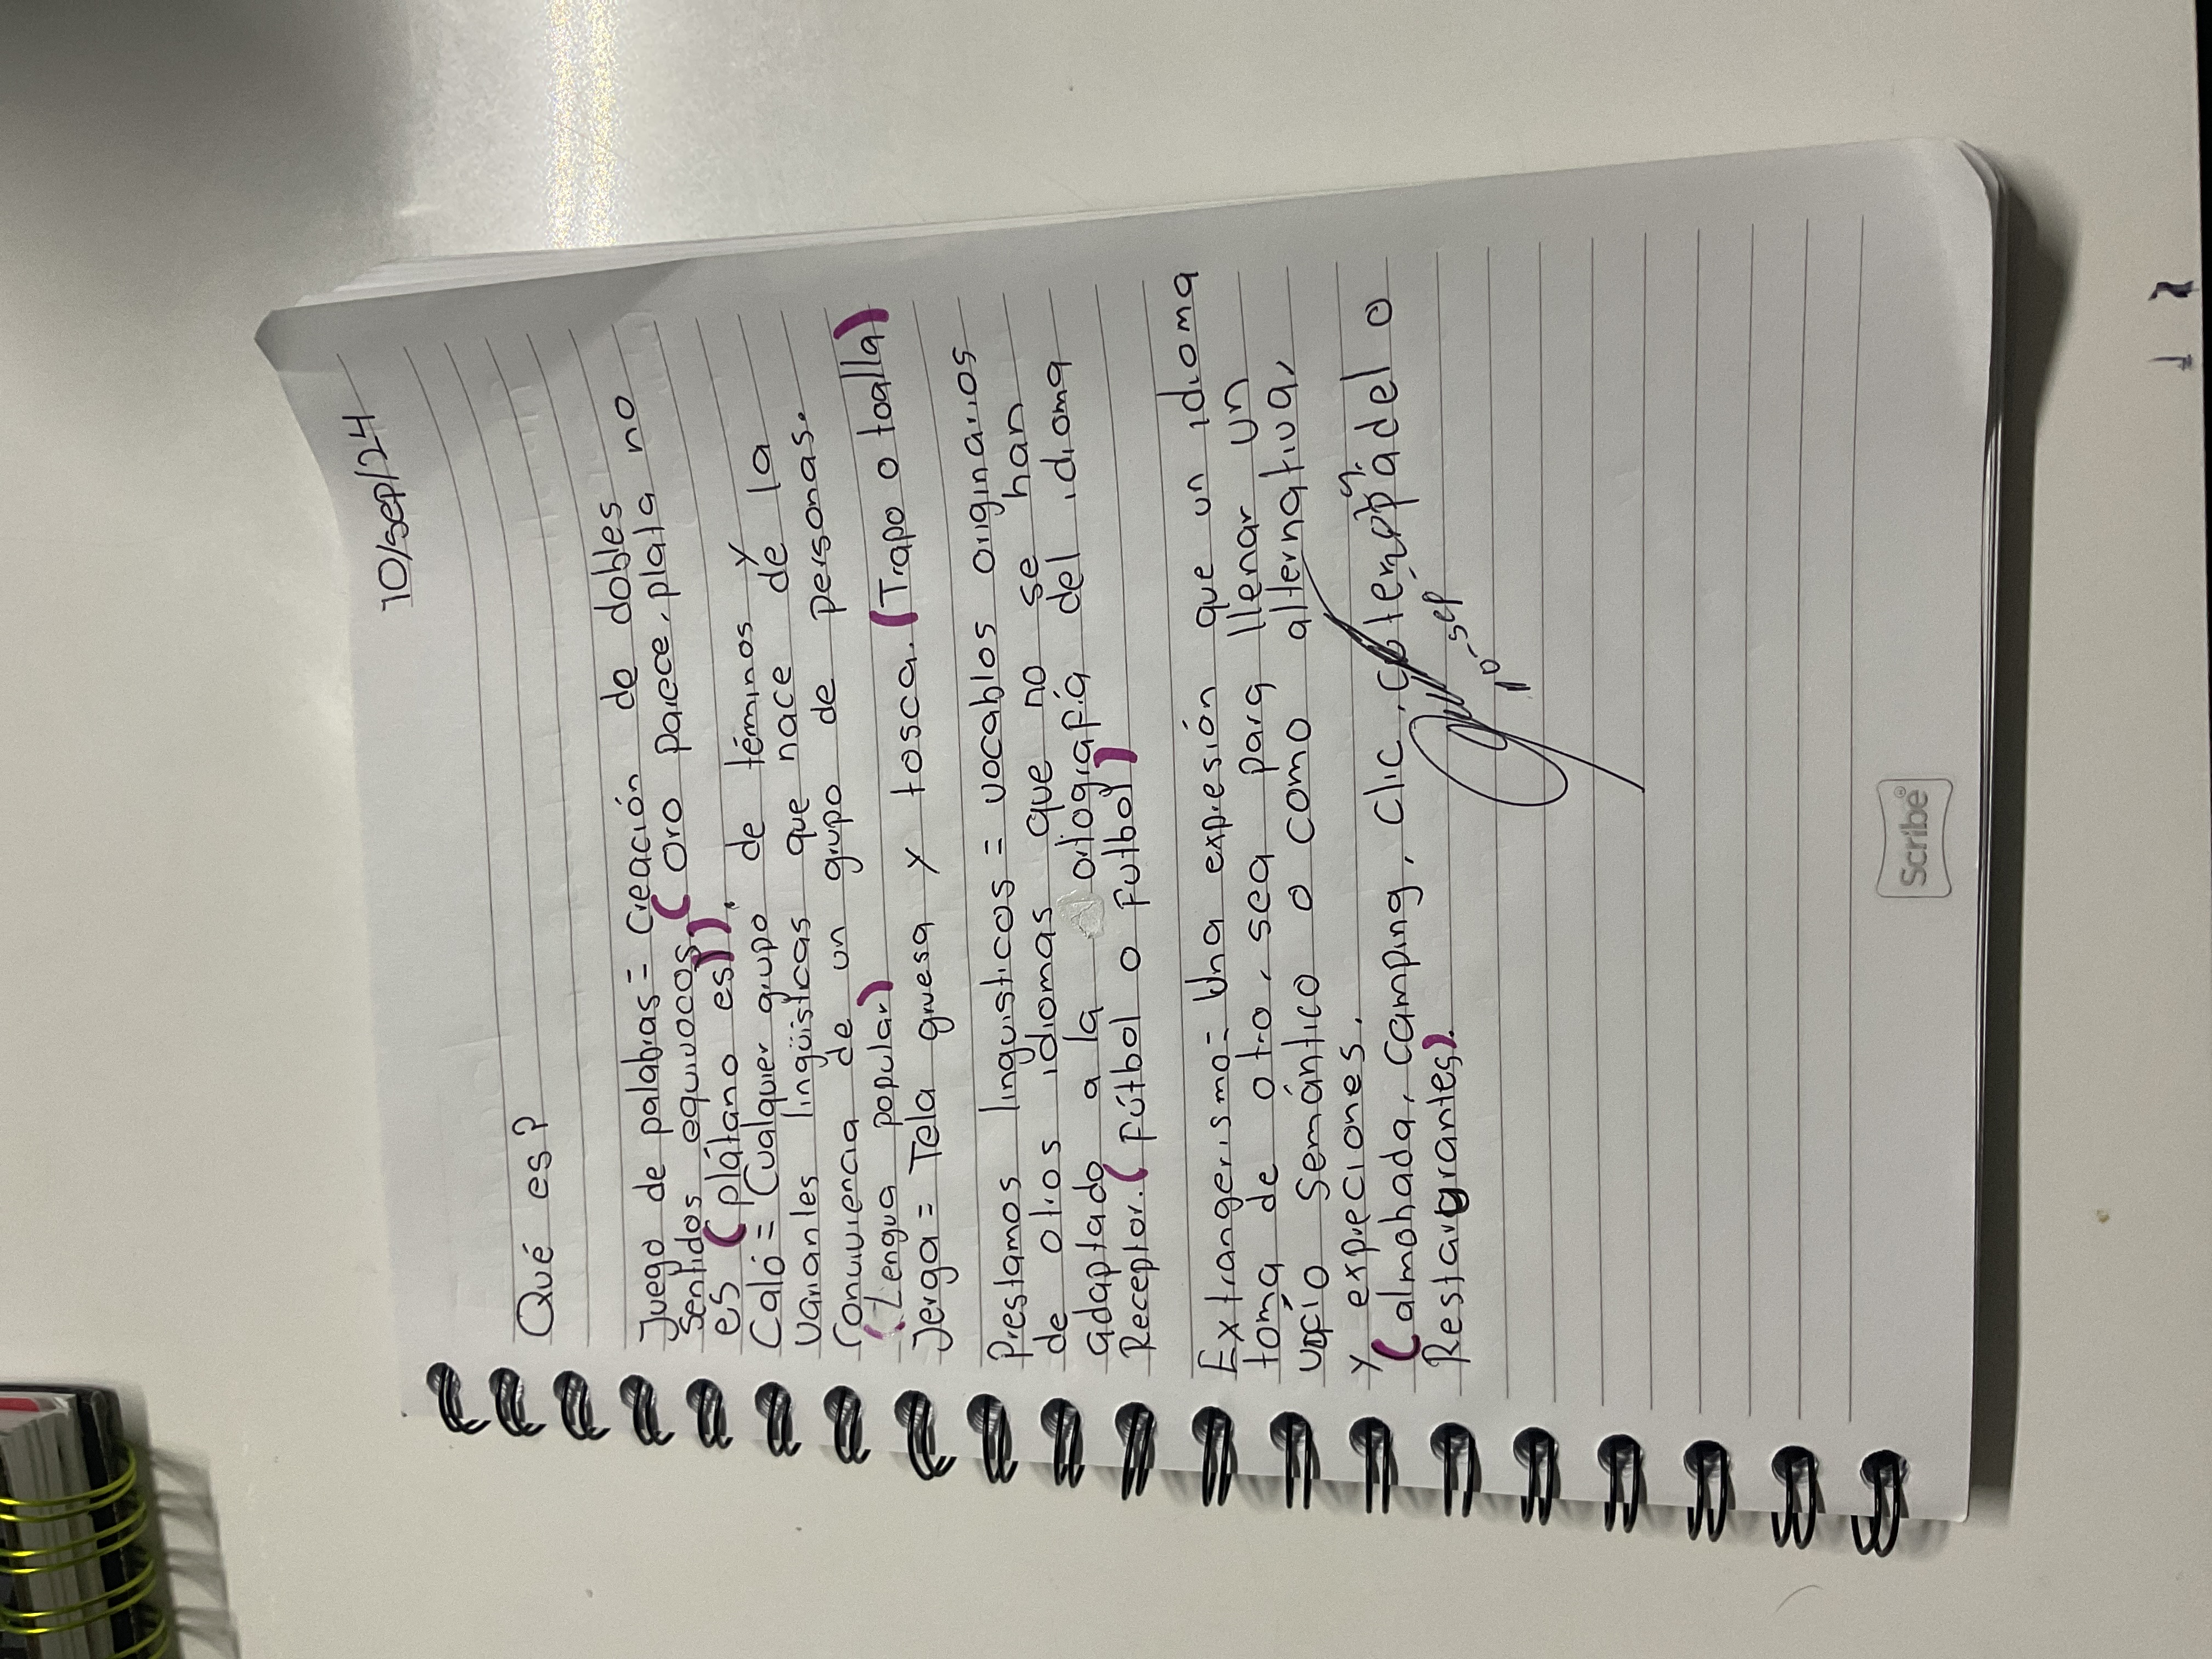 10/sep/24
Qué es?
Juego de palabras = Creación de dobles
Sentidos equivocos. (Oro parece, plata no
es (plátano es)).
Caló = Cualquier grupo de téminos y
variantes lingüisticas que nace de la
Convivencia de un grupo de personas.
(Lengua popular)
Jerga = Tela gruesa y tosca. (Trapo o toalla)
Prestamos linguisticos = vocablos originarios
de otros idiomas que no se han
adaptado a la ortografía del idioma
Receptor. (Fútbol o Futbol)
Extrangerismo = Una expresión que un idioma
toma de otro, sea para llenar un
vacío Semántico o como alternativa,
y expreciones.
(almohada, camping, clic, o
Restaurantes).
10-sep
Scribe